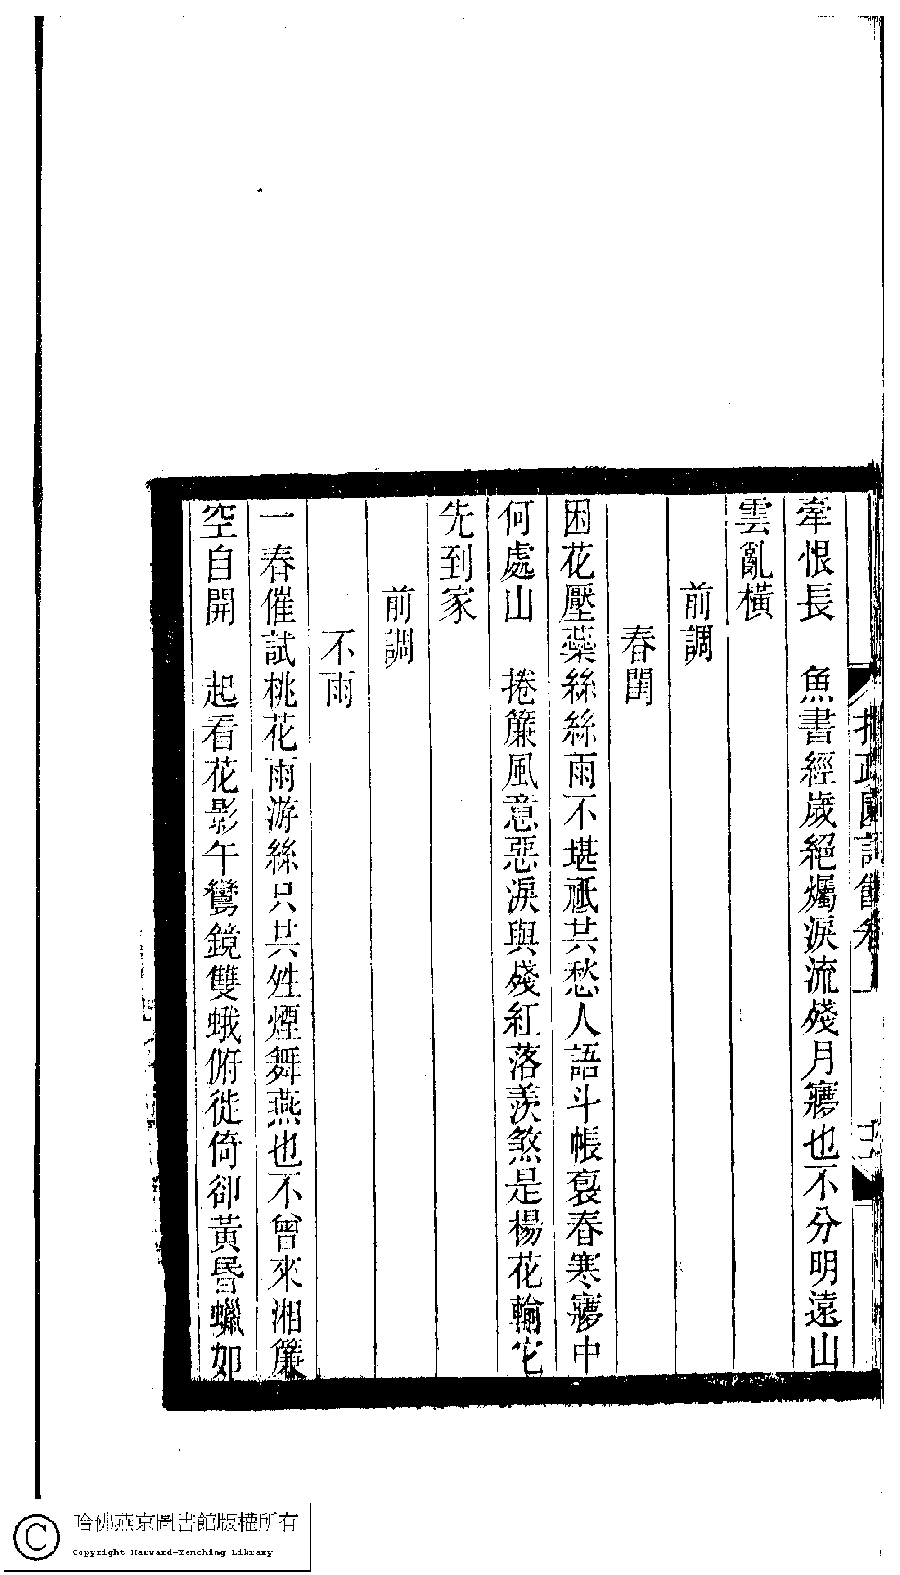 牽恨長　魚書經歲絕燭淚流殘月寢也不分明遠山
雲亂橫
前調
春閨
困花壓蘂絲絲雨不堪祇共愁人語斗帳裛春寒寢中
何處山　捲簾風意惡淚與殘紅落羨煞是楊花輸它
先到家
前調
不雨
一春催試桃花雨游絲只共姓煙舞燕也不曾來湘簾
空自開　起看花影午鸞鏡雙蛾俯徙倚卻黃昏蠟如
拙政園詩餘卷
哈佛燕京圖書館版權所有
Copyright Harvard-Yenching Library